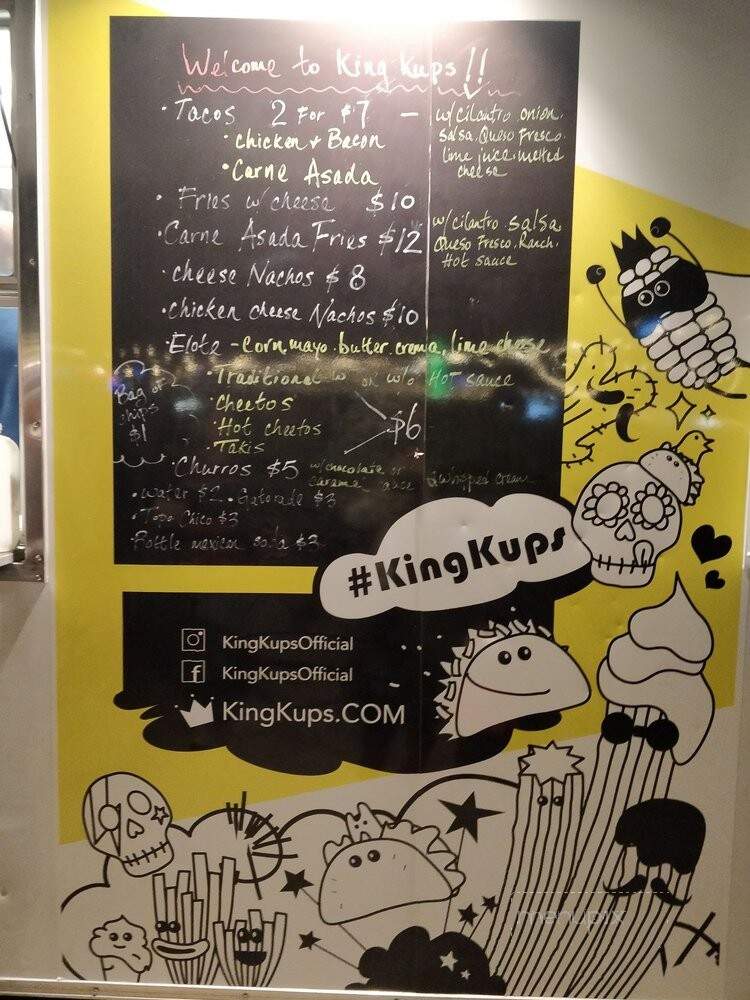 Welcome to King Kups!!
• Tacos 2 For $7 — w/cilantro onion.
salsa. Queso Fresco.
lime juice. melted
cheese
• chicken + Bacon
• Carne Asada
• Fries w/cheese $10
• Carne Asada Fries $12
w/cilantro salsa
Queso Fresco. Ranch.
Hot sauce
• cheese Nachos $8
• Chicken cheese Nachos $10
• Elote - Corn. mayo. butter. crema, lime cheese
• Traditional w or w/o HOT sauce
• Cheetos
• Hot cheetos
• Takis
$6
Bag of
chips
$1
• Churros $5 w/chocolate or
caramel sauce & whipped cream
• Water $2 • Gatorade $3
• Topo Chico $3
• Bottle mexican soda $3
#KingKups
KingKupsOfficial
KingKupsOfficial
KingKups.COM
menupix